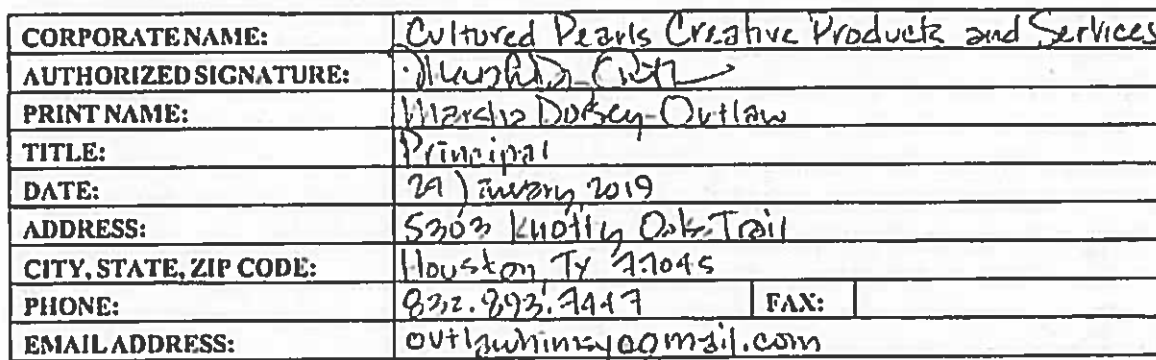 CORPORATE NAME: Cultured Pearls Creative Products and Services
AUTHORIZED SIGNATURE:
PRINT NAME: Marsha Dorsey-Outlaw
TITLE: Principal
DATE: 29 January, 2019
ADDRESS: 5303 Knotty Oaks Trail
CITY, STATE, ZIP CODE: Houston, TX 77045
PHONE: 832.893.7447 FAX:
EMAIL ADDRESS: